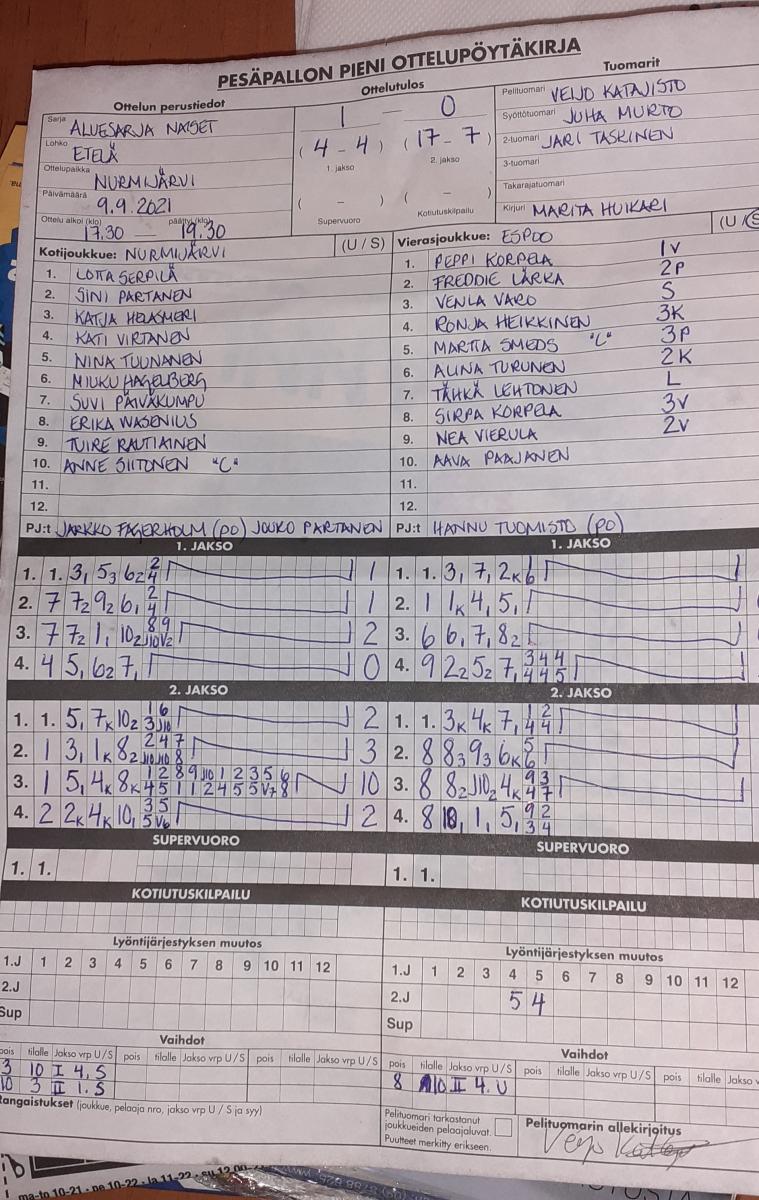 PESÄPALLON PIENI OTTELUPÖYTÄKIRJA
Ottelun perustiedot
Ottelutulos
Tuomarit
Sarja ALUESARJA NAISET
Lohko ETELÄ
Ottelupaikka NURMIJÄRVI
Päivämäärä 9.9.2021
Ottelu alkoi (klo) 17.30 päättyi (klo) 19.30
1 – 0
(4 – 4) (17 – 7)
1. jakso 2. jakso
( – ) ( – )
Supervuoro Kotiutuskilpailu
Pelituomari VEIJO KATAJISTO
Syöttötuomari JUHA MURTO
2-tuomari JARI TASKINEN
3-tuomari
Takarajatuomari
Kirjuri MARITA HUIKARI
Kotijoukkue: NURMIJÄRVI (U / S)
1. LOTTA SERPILÄ
2. SINI PARTANEN
3. KATJA HELASMERI
4. KATI VIRTANEN
5. NINA TUUNANEN
6. MIUKU HAGELBERG
7. SUVI PÄIVÄKUMPU
8. ERIKA WASENIUS
9. TUIRE RAUTIAINEN
10. ANNE SIITONEN "C"
11.
12.
PJ:t JARKKO FAGERHOLM (PO) JOUKO PARTANEN
Vierasjoukkue: ESPOO (U / S
1. PEPPI KORPELA 1V
2. FREDDIE LÄRKA 2P
3. VENLA VARO S
4. RONJA HEIKKINEN 3K
5. MARTTA SMEDS "C" 3P
6. ALINA TURUNEN 2K
7. TÄHKÄ LEHTONEN L
8. SIRPA KORPELA 3V
9. NEA VIERULA 2V
10. AAVA PAAJANEN
11.
12.
PJ:t HANNU TUOMISTO (PO)
1. JAKSO
1. 1. 3, 5₃ 6₂ 2 4 1
2. 7 7₂ 9₂ 6, 2 4 1
3. 7 7₂ 1, 10₂ 8 9 J10 V2 2
4. 4 5, 6₂ 7, 0
1. JAKSO
1. 1. 3, 7, 2K 1 6
2. 1 1K 4, 5,
3. 6 6, 7, 8₂
4. 9 2₂ 5₂ 7, 3 4 4 4 4 5
2. JAKSO
1. 1. 5, 7K 10₂ 1 6 3 J10 2
2. 1 3, 1K 8₂ 2 4 7 J10 J10 8 3
3. 1 5, 4K 8K 1 2 8 9 J10 1 2 3 5 6 4 5 1 1 2 4 5 5 V7 8 10
4. 2 2K 4K 10, 3 5 5 V6 2
2. JAKSO
1. 1. 3K 4K 7, 1 2 4 4
2. 8 8₃ 9₃ 6K 5 6
3. 8 8₂ J10₂ 4K 9 3 4 7
4. 8 10, 1, 5, 9 2 3 4
SUPERVUORO
1. 1.
SUPERVUORO
1. 1.
KOTIUTUSKILPAILU
KOTIUTUSKILPAILU
Lyöntijärjestyksen muutos
1.J 1 2 3 4 5 6 7 8 9 10 11 12
2.J
Sup
Lyöntijärjestyksen muutos
1.J 1 2 3 4 5 6 7 8 9 10 11 12
2.J 5 4
Sup
Vaihdot
pois tilalle Jakso vrp U/S pois tilalle Jakso vrp U/S pois tilalle Jakso vrp U/S
3 10 I 4. S
10 3 II 1. S
Rangaistukset (joukkue, pelaaja nro, jakso vrp U / S ja syy)
Vaihdot
pois tilalle Jakso vrp U/S pois tilalle Jakso vrp U/S pois tilalle Jakso v
8 10 II 4. U
Pelituomari tarkastanut
joukkueiden pelaajaluvat.
Puutteet merkitty erikseen.
Pelituomarin allekirjoitus
ma-to 10-21 • pe 10-22 • la 11-22 • su 12.00